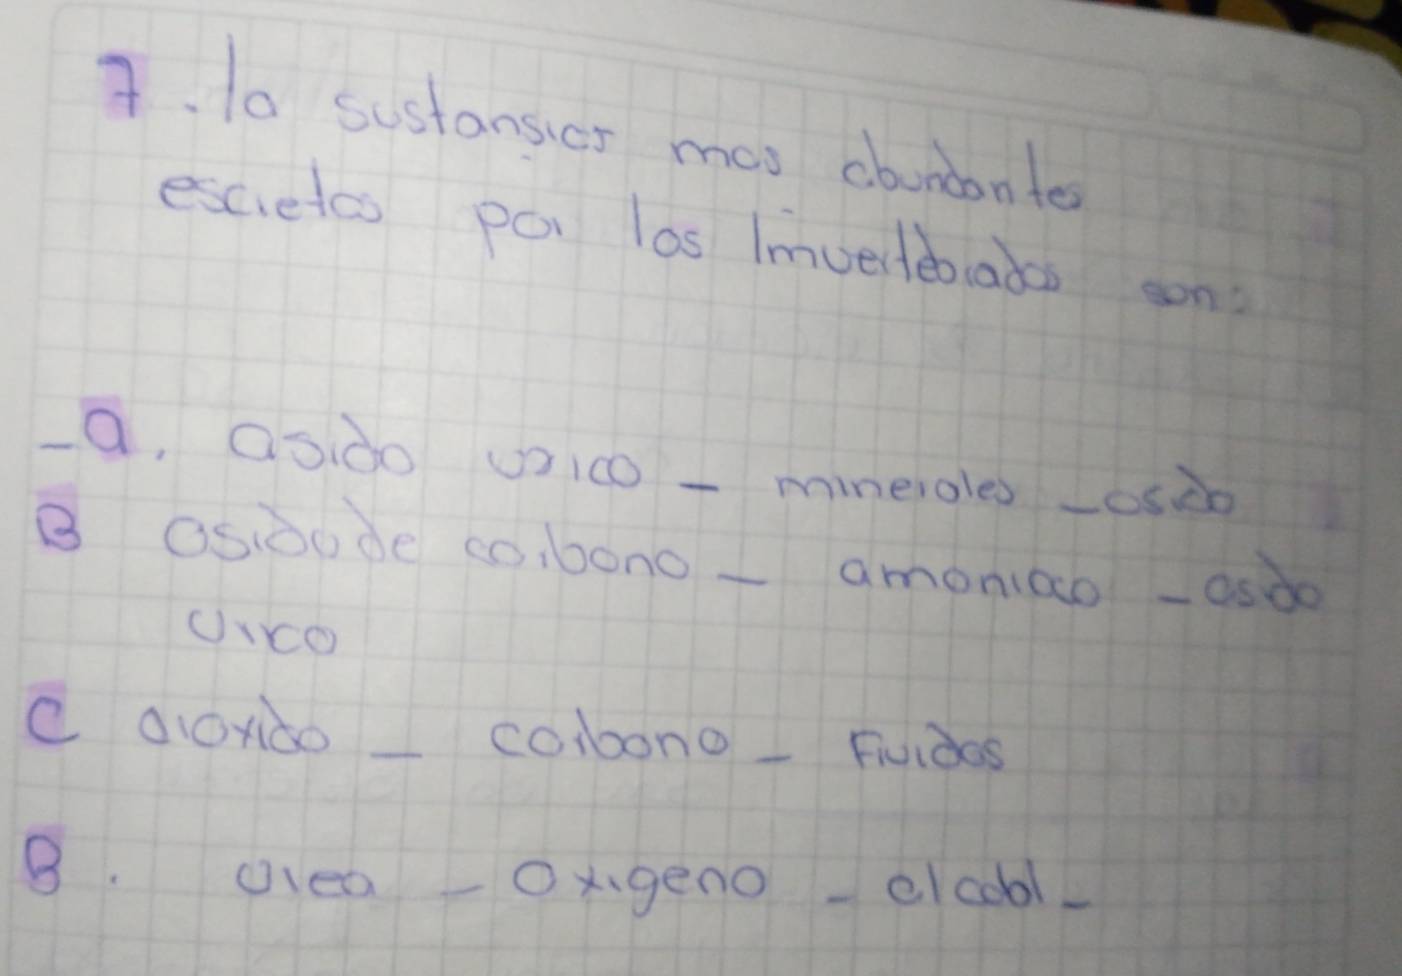 7. la sustansias mas abundantes
escretas por los Imvertebrados son:
-a. asido urico - minerales - asido
B asidode carbono - amoniaco - asido
urico
C dioxido - carbono - Fluidos
B. urea - oxigeno - alcool -